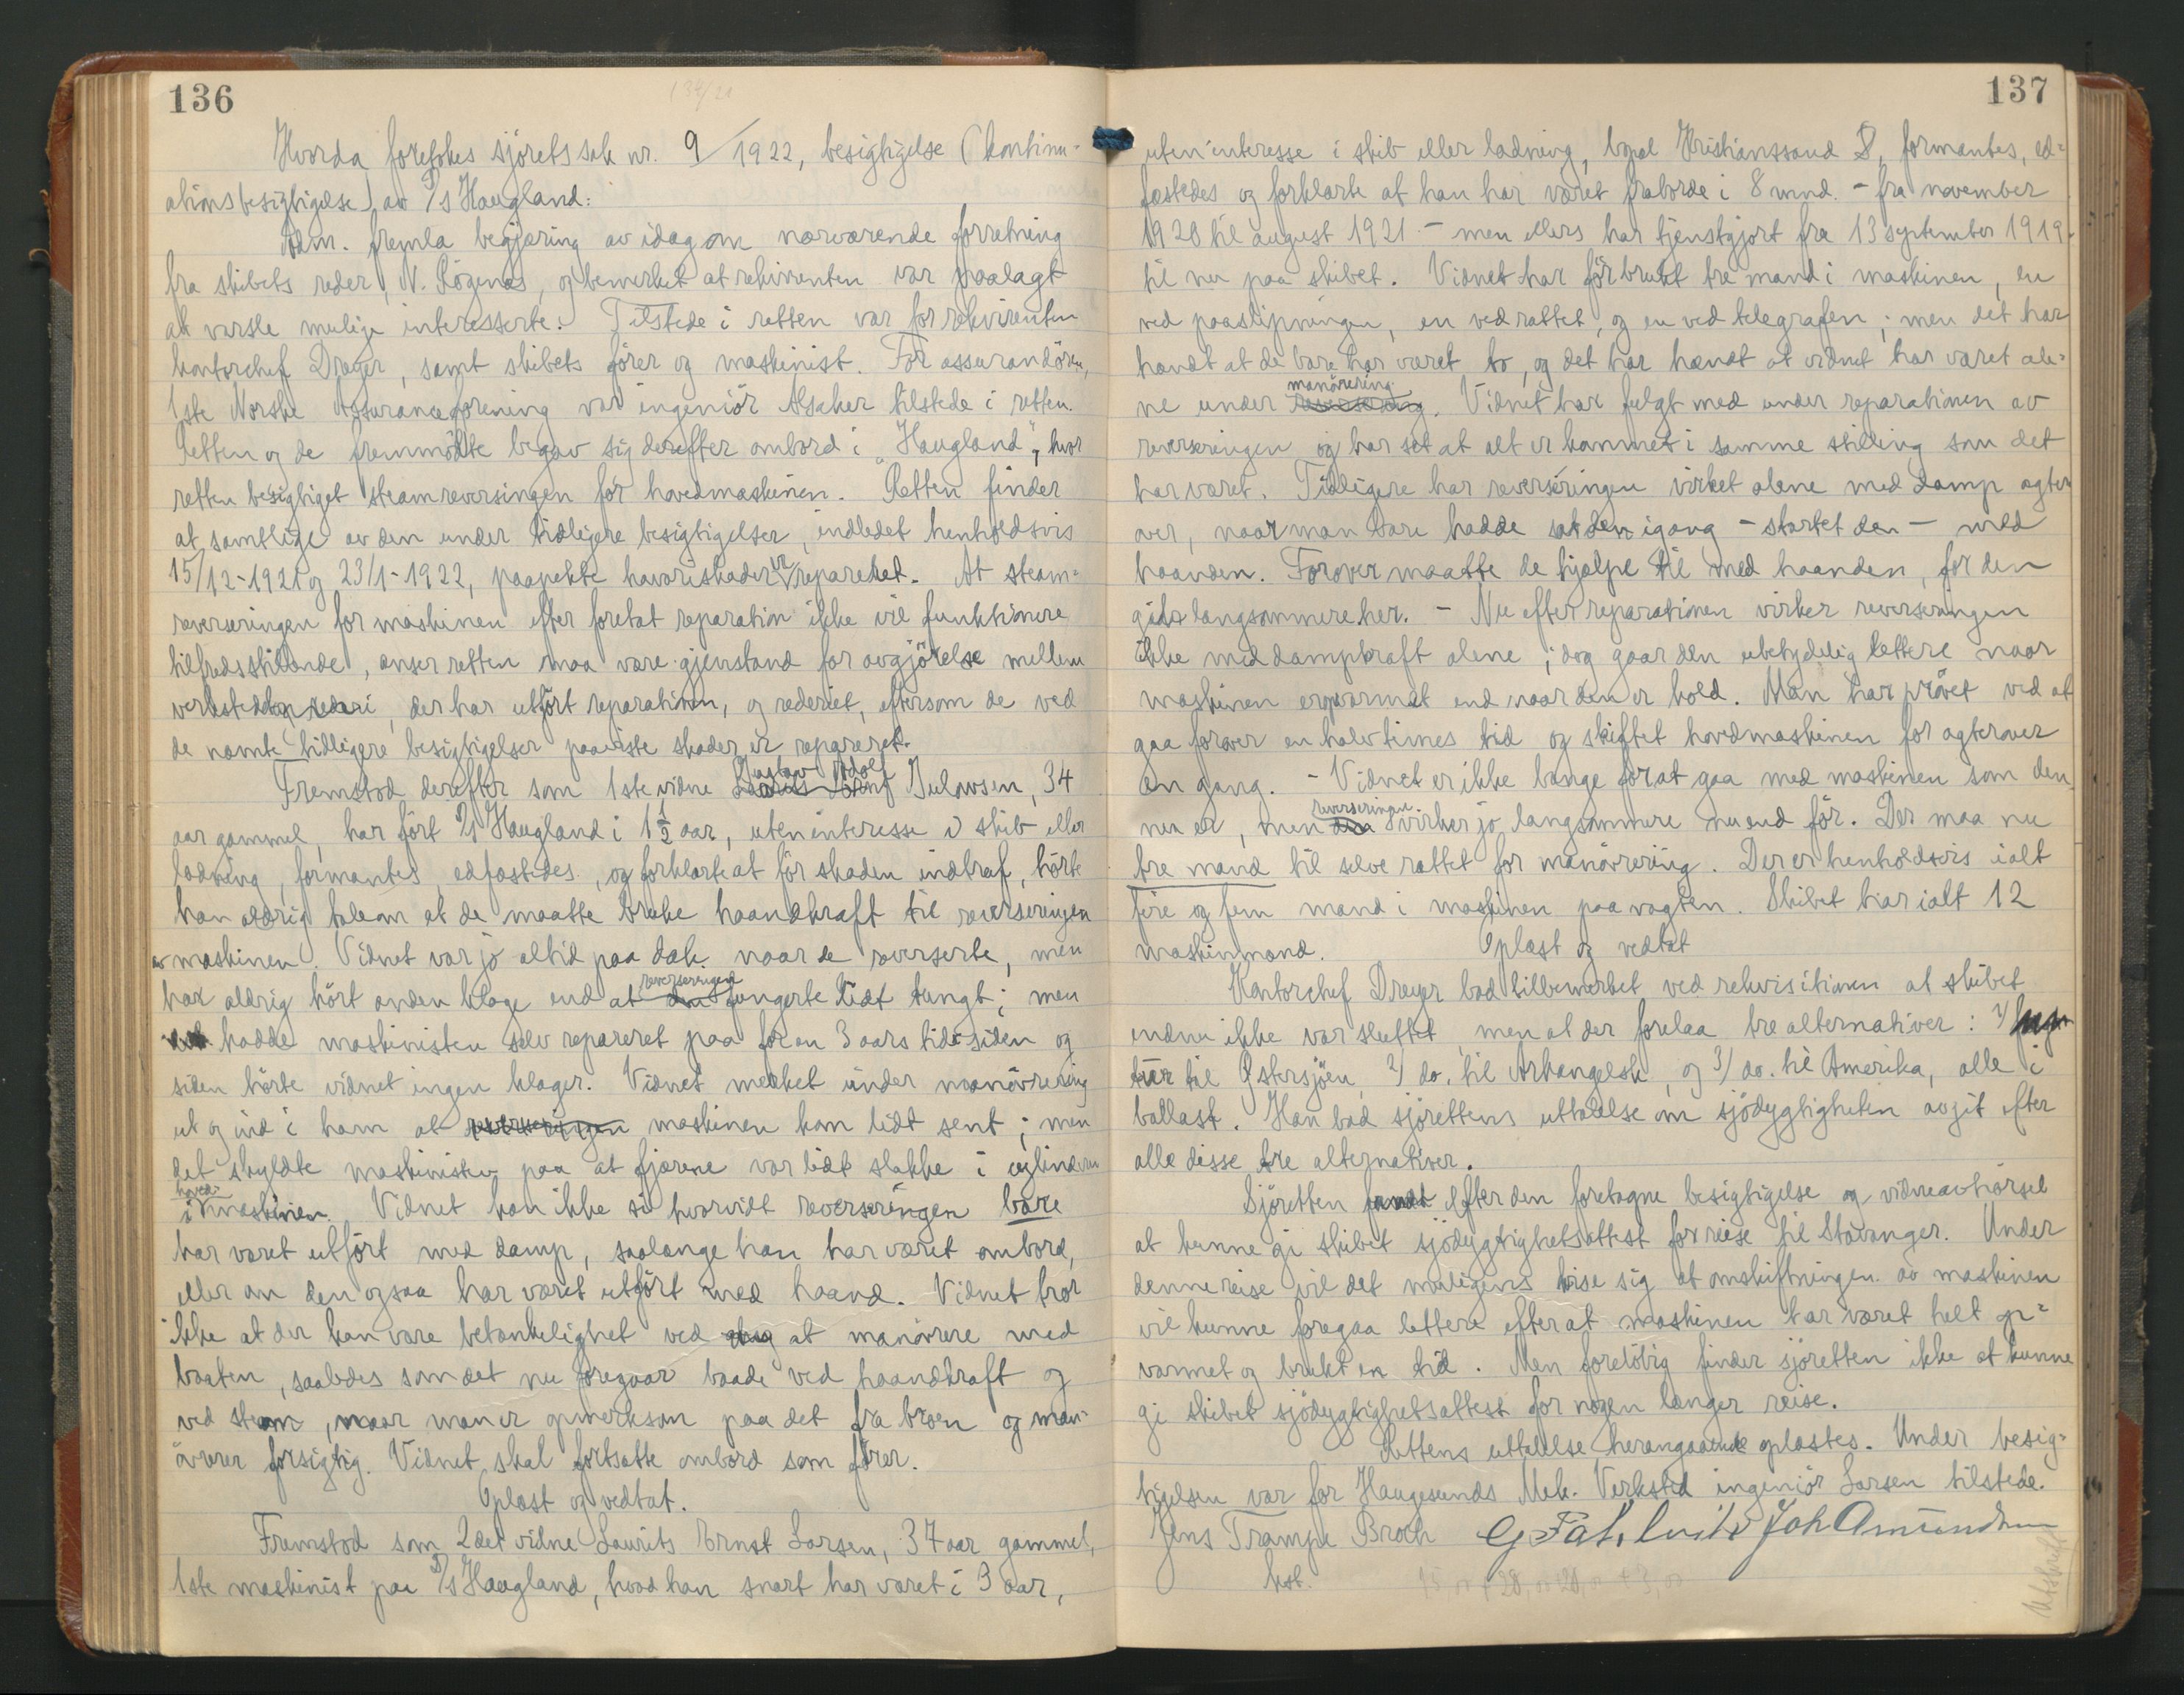 136
139/21
Hvorda foretokes sjøretssak nr. 9/1922, besigtigelse (kontinu-
ationsbesigtigelse) av D/s Haugland:
Adm. fremla begjæring av idag om nærværende forretning
fra skibets reder, N. Røgenæs, og bemerket at rekvirenten var paalagt
at varsle mulige interesserte. Tilstede i retten var for rekvirenten
kontorchef Dreyer, samt skibets fører og maskinist. For assurandøren,
1ste Norske Assuranceforening var ingeniør Alsaker tilstede i retten.
Retten og de fremmødte begav sig derefter ombord i "Haugland", hvor
retten besigtiget steamreversingen for hovedmaskinen. Retten finder
at samtlige av den under tidligere besigtigelser, indledet henholdsvis
15/12-1921 og 23/1-1922, paapekte havariskader er reparertet. At steam-
reverseringen for maskinen efter foretat reparation ikke vil funktionere
tilfredsstillende, anser retten maa være gjenstand for avgjørelse mellem
verkstedet og rederi, der har utført reparationen, og rederiet, eftersom de ved
de nævnte tidligere besigtigelser paaviste skader er reparert.
Fremstod derefter som 1ste vidne Gustav Adolf Gulowsen, 34
aar gammel, har ført D/s Haugland i 1½ aar, uten interesse i skib eller
ladning, formantes, edfæstedes, og forklarte at før skaden indtraf, hørte
han aldrig tale om at de maatte bruke haandkraft til reverseringen
av maskinen. Vidnet var jo altid paa dæk naar de reverserte, men
har aldrig hørt anden klage end at den reverseringen fungerte lidt tungt; men
det hadde maskinisten selv reparert paa for en 3 aars tid siden og
siden hørte vidnet ingen klager. Vidnet merket under manøvrering
ut og ind i havn at reverseringen maskinen kom lidt sent; men
det skyldte maskinisten paa at fjærene var lidt slakke i cylinderen
i hovedmaskinen. Vidnet kan ikke si hvorvidt reverseringen bare
har været utført med damp, saalænge han har været ombord,
eller om den ogsaa har været utført med haand. Vidnet tror
ikke at der kan være betænkelighet ved at manøvrere med
baaten, saaledes som det nu foregaar baade ved haandkraft og
ved steam, naar man er opmerksom paa det fra broen og man-
øvrerer forsigtig. Vidnet skal fortsætte ombord som fører.
Oplæst og vedtat.
Fremstod som 2det vidne Laurits Ernst Larsen, 37 aar gammel,
1ste maskinist paa D/s Haugland, hvad han snart har været i 3 aar,
137
uten interesse i skib eller ladning, bopæl Kristianssand S, formantes, ed-
fæstedes og forklarte at han har været fraborde i 8 mnd. - fra november
1920 til august 1921 - men ellers har tjenstgjort fra 13 september 1919
til nu paa skibet. Vidnet har før brukt tre mand i maskinen, en
ved paaslipningen, en ved rattet, og en ved telegrafen; men det har
hændt at de bare har været to, og det har hændt at vidnet har været ale-
ne under reversering manøvrering. Vidnet har fulgt med under reparationen av
reverseringen og har set at alt er kommet i samme stilling som det
har været. Tidligere har reverseringen virket alene med damp agter
over, naar man bare hadde sat den igang - startet den - med
haanden. Forover maatte de hjælpe til med haanden, for den
gikk langsommere her. - Nu efter reparationen virker reverseringen
ikke med dampkraft alene; dog gaar den ubetydelig lettere naar
maskinen er varmet end naar den er kold. Man har prøvet ved at
gaa forover en halv times tid og skiftet hovedmaskinen for agterover
en gang. - Vidnet er ikke bange for at gaa med maskinen som den
nu er, men den reverseringen virker jo langsommere nu end før. Der maa nu
tre mand til selve rattet for manøvrering. Der er henholdsvis ialt
fire og fem mand i maskinen paa vagten. Skibet har ialt 12
maskinmand. Oplæst og vedtat
Kontorchef Dreyer bad tilbemerket ved rekvisitionen at skibet
endnu ikke var sluttet, men at der forelaa tre alternativer: 1)
tur til Østersjøen, 2) do. til Arkangelsk, og 3) do. til Amerika, alle i
ballast. Han bad sjørettens uttalelse om sjødygtigheten avgit efter
alle disse tre alternativer.
Sjøretten fandt efter den foretagne besigtigelse og vidneavhørsel
at kunne gi skibet sjødygtighetsattest for reise til Stavanger. Under
denne reise vil det muligens vise sig at omskiftningen av maskinen
vil kunne foregaa lettere efterat maskinen har været helt op-
varmet og brukt en tid. Men foreløbig finder sjøretten ikke at kunne
gi skibet sjødygtighetsattest for nogen længer reise.
Rettens uttalelse herangaaende oplæstes. Under besig-
tigelsen var for Haugesunds Mek. Verksted ingeniør Larsen tilstede.
Jens Trampe Broch Joh Amundsen
kst.
Utskrift